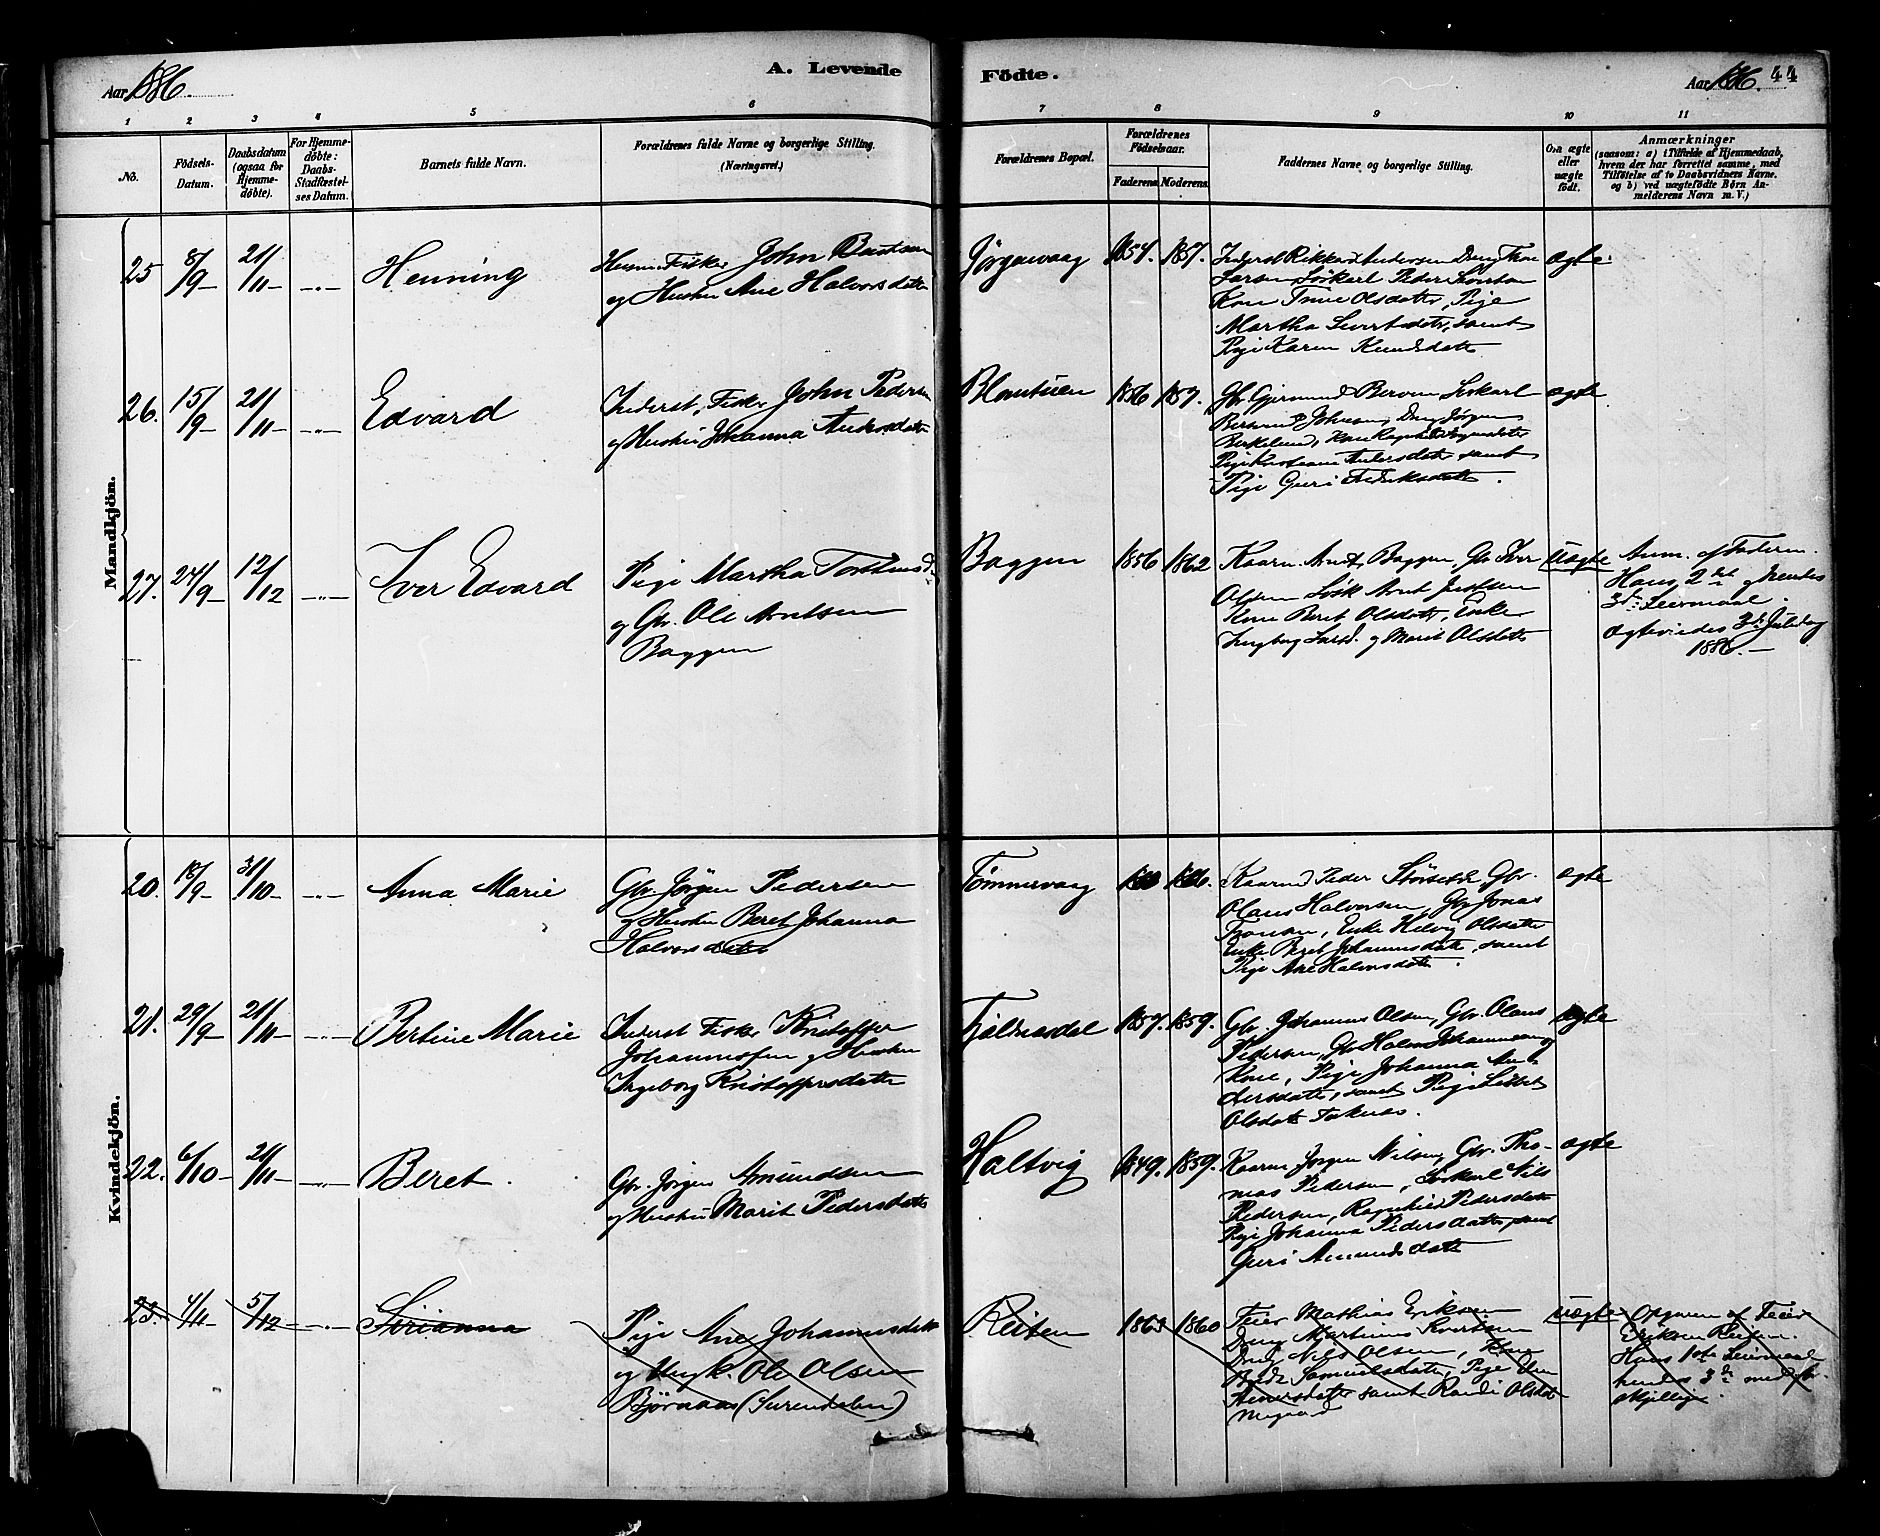 Aar 1886.
A. Levende
Födte.
Aar 1886. 44
1 2 3 4 5 6 7 8 9 10 11
No.
Födsels-
Datum.
Daabsdatum
(ogsaa for
Hjemme-
döbte).
For Hjemme-
döbte:
Daabs-
Stadfæstel-
ses Datum.
Barnets fulde Navn.
Forældrenes fulde Navne og borgerlige Stilling.
(Næringsvei.)
Forældrenes Bopæl.
Forældrenes
Födselsaar.
Faderens Moderens
Faddernes Navne og borgerlige Stilling.
Om ægte
eller
uægte
født.
Anmærkninger
(saasom: a) i Tilfælde af Hjemmedaab,
hvem der har forrettet samme, med
Tilføielse af to Daabsvidners Navne.
og b) ved uægtefödte Börn An-
melderens Navn m. V.)
Mandkjön.
25 8/9 21/11 Henning
Fisker John
og Hustru Ane Halvorsdatter
1854. 1857.
Inderst Rikkard Andersen
Larsen Löskarl Peder
Kone Olsdatter, Pige
Martha Sivertsdatter, samt
Pige Karen Knudsdatter
ægte.
26. 15/9 21/11 Edvard
Inderst, Fisker John Pedersen
og Hustru Johanna Andersdatter
1856 1857.
Gbr. Gjermund Löskarl
Johnsen, Dreng Jörgen
Birkelund, Kone
Pige Andersdatter samt
Pige Guri
ægte
27. 24/9 12/12 Iver Edvard
Pige Martha
og Gbr. Ole Arntsen
Baggen
Baggen 1856 1862
Kaarm. Arnt Baggen, Gbr. Iver
Olsen Lösk. Arnt
Kone Beret Olsdatter, Enke
Ingeborg Larsd. og Marit Olsdatter
uægte
Anm. af Faderen.
Hans 2det og hendes
3die Leiermaal.
Ægteviedes 3die Juledag
1886.
Kvindekjön.
20. 18/9 31/10 Anna Marie
Gbr. Jörgen Pedersen
og Hustru Beret Johanna
Halvorsdatter
Tömmervaag
Kaarm. Peder Gbr.
Olaus Halvorsen, Gbr. Jonas
Enke Helvig Olsdatter
Enke Beret Johannesdatter, samt
Pige Ane Halvorsdatter.
ægte
21. 29/9 21/11 Bertine Marie
Inderst Fisker Kristoffer
Johannessen og Hustru
Ingeborg Kristoffersdatter
1857. 1859.
Gbr. Johannes Olsen, Gbr. Olaus
Pedersen, Gbr. Johannessens
Kone, Pige Johanna An-
dersdatter, samt Pige
Olsdatter.
ægte
22. 6/10 21/11 Beret.
Gbr. Jörgen Amundsen
og Hustru Marit Pedersdatter
Haltvig 1849. 1859.
Kaarm. Jörgen Nilsen, Gbr. Tho-
mas Pedersen, Löskarl Nils
Pedersen, Ragnhild Pedersdatter
Pige Johanna Pedersdatter, samt
Guri Amundsdatter
ægte
23. 4/11 5/12 Sirianna
Pige Ane Johannesdatter
og Ungk. Ole Olsen
Björnaas (Surendalen)
Reiten 1863 1860
Feier Mathias Eriksen
Dreng Martinus Sivertsen
Dreng Nils Olsen, Kone
Samuelsdatter, Pige
samt Randi
uægte
Opgiven af Feier
Eriksen Reiten.
Hans 1ste Leiermaal
hendes 3die med for-
skjellige.